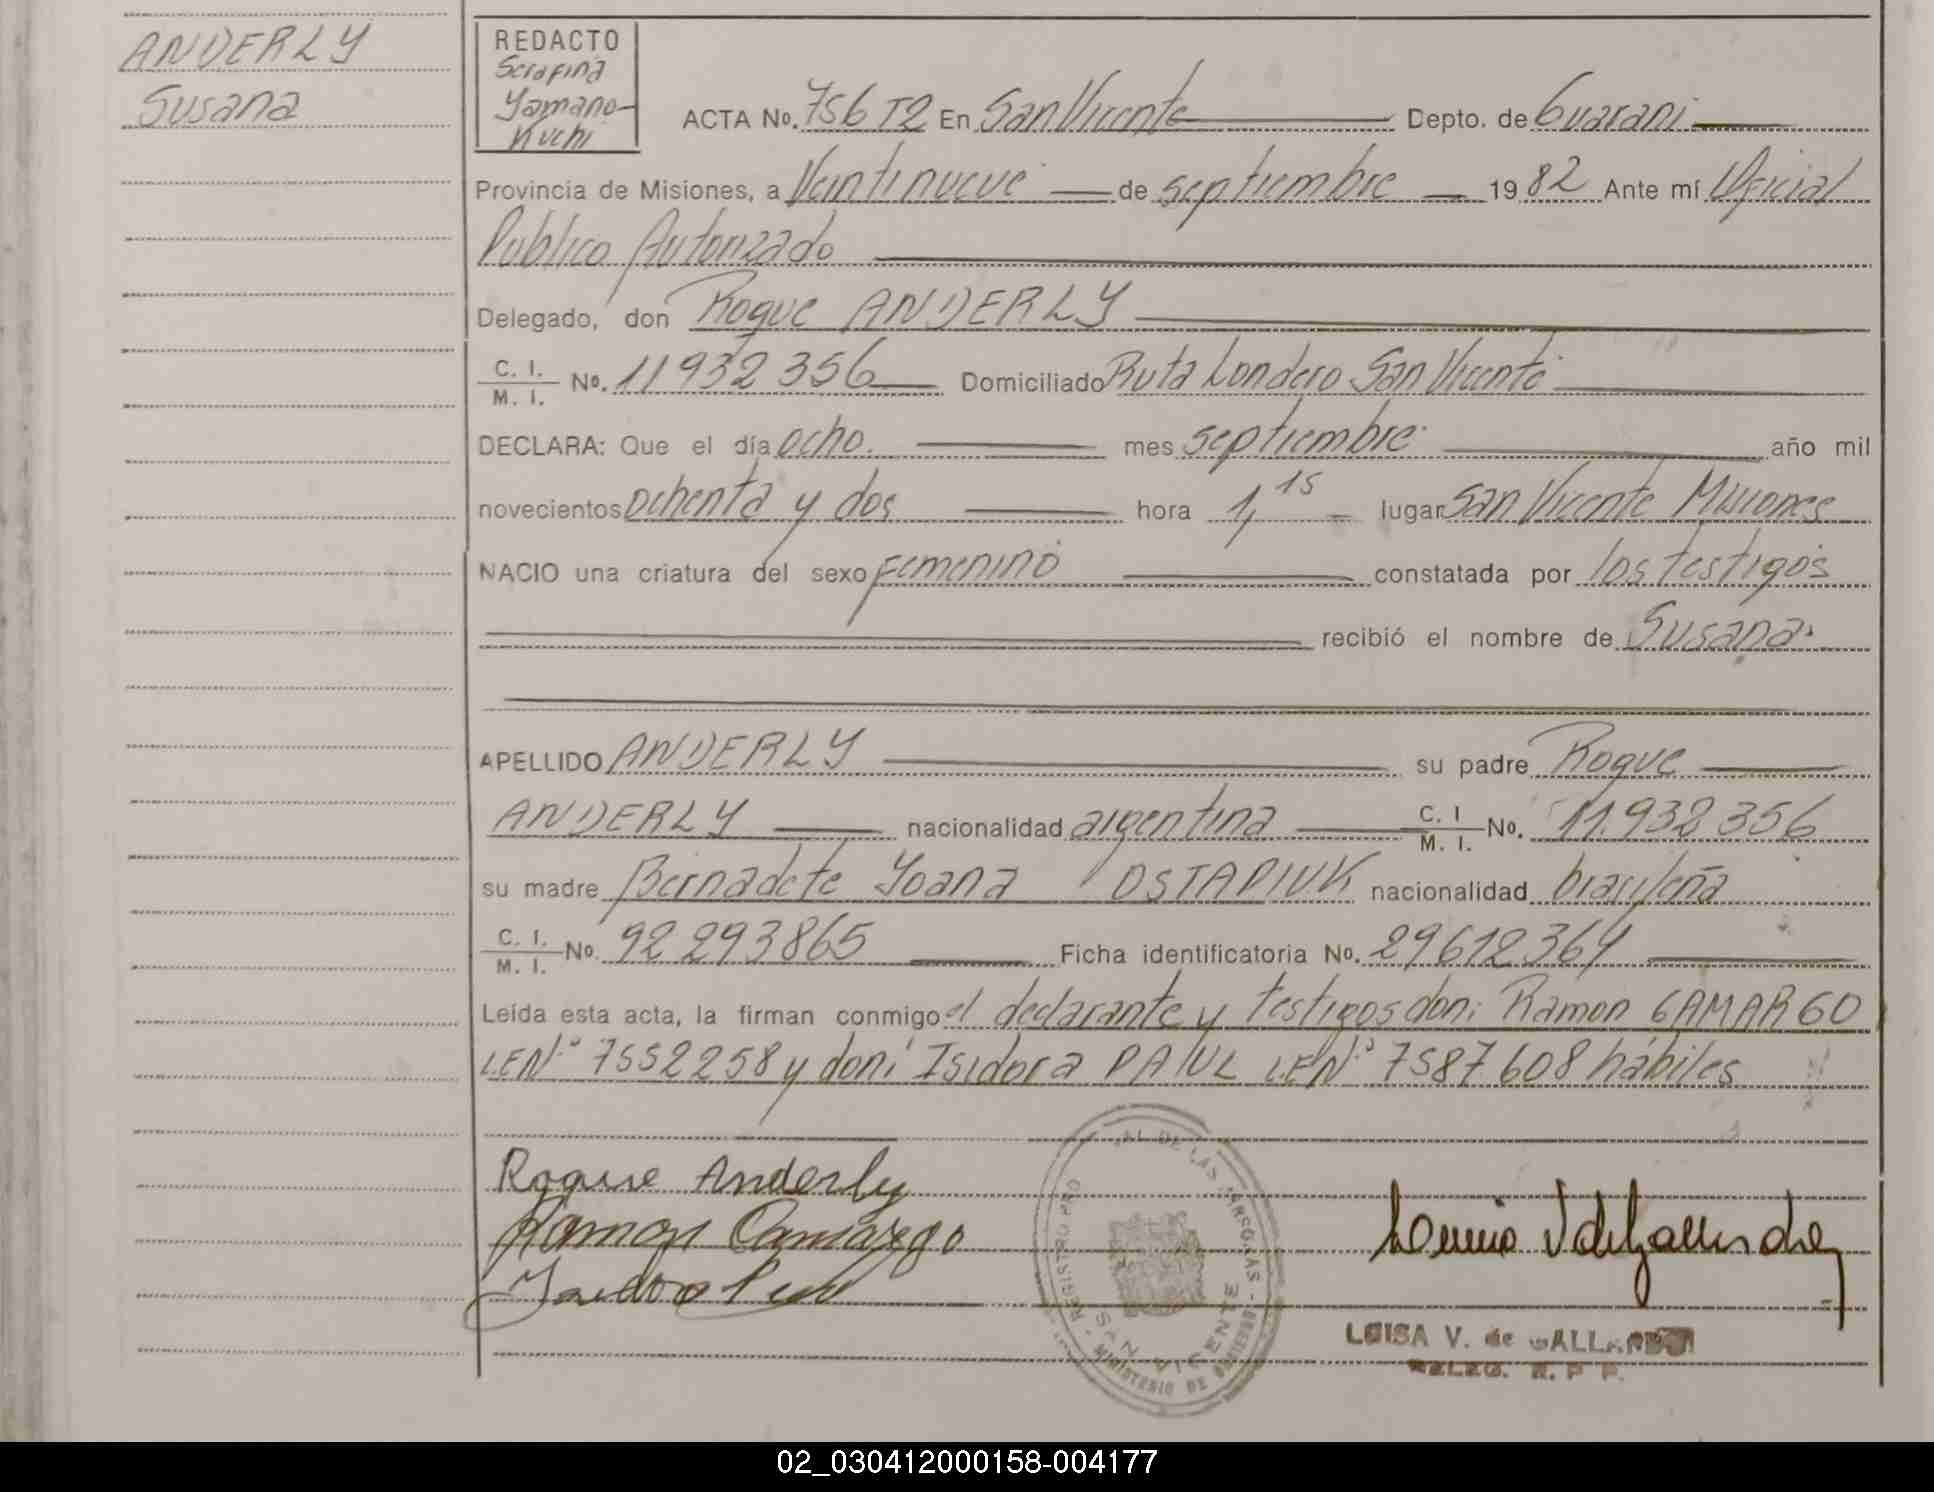 ANDERLY
Susana
REDACTO
Serafina
Yamano-
Kuchi
ACTA No. 756 T2 En San Vicente Depto. de Guarani
Provincia de Misiones, a Veintinueve de septiembre 1982 Ante mí Oficial
Publico Autorizado
Delegado, don Roque ANDERLY
C. I. / M. I. No. 11932356 Domiciliado Ruta Londero San Vicente
DECLARA: Que el día ocho. mes septiembre año mil
novecientos ochenta y dos hora 1,15 lugar San Vicente Misiones
NACIO una criatura del sexo femenino constatada por los testigos
recibió el nombre de Susana
APELLIDO ANDERLY su padre Roque
ANDERLY nacionalidad argentina C. I / M. I. No. 11.932356
su madre Bernadete Yoana OSTAPIUK nacionalidad brasileña
C. I. / M. I. No. 92293865 Ficha identificatoria No. 29612364
Leída esta acta, la firman conmigo el declarante y testigos don: Ramon CAMARGO
LEN° 7552258 y don: Isidoro PAIUL LEN° 7587608 hábiles
Roque Anderly
Ramon Camargo
REGISTRO PRO AL DE LAS PERSONAS - MINISTERIO DE GOBIERNO -
SAN VICENTE
LUISA V. de GALLARDO
DELEG. R. P P.
02_030412000158-004177